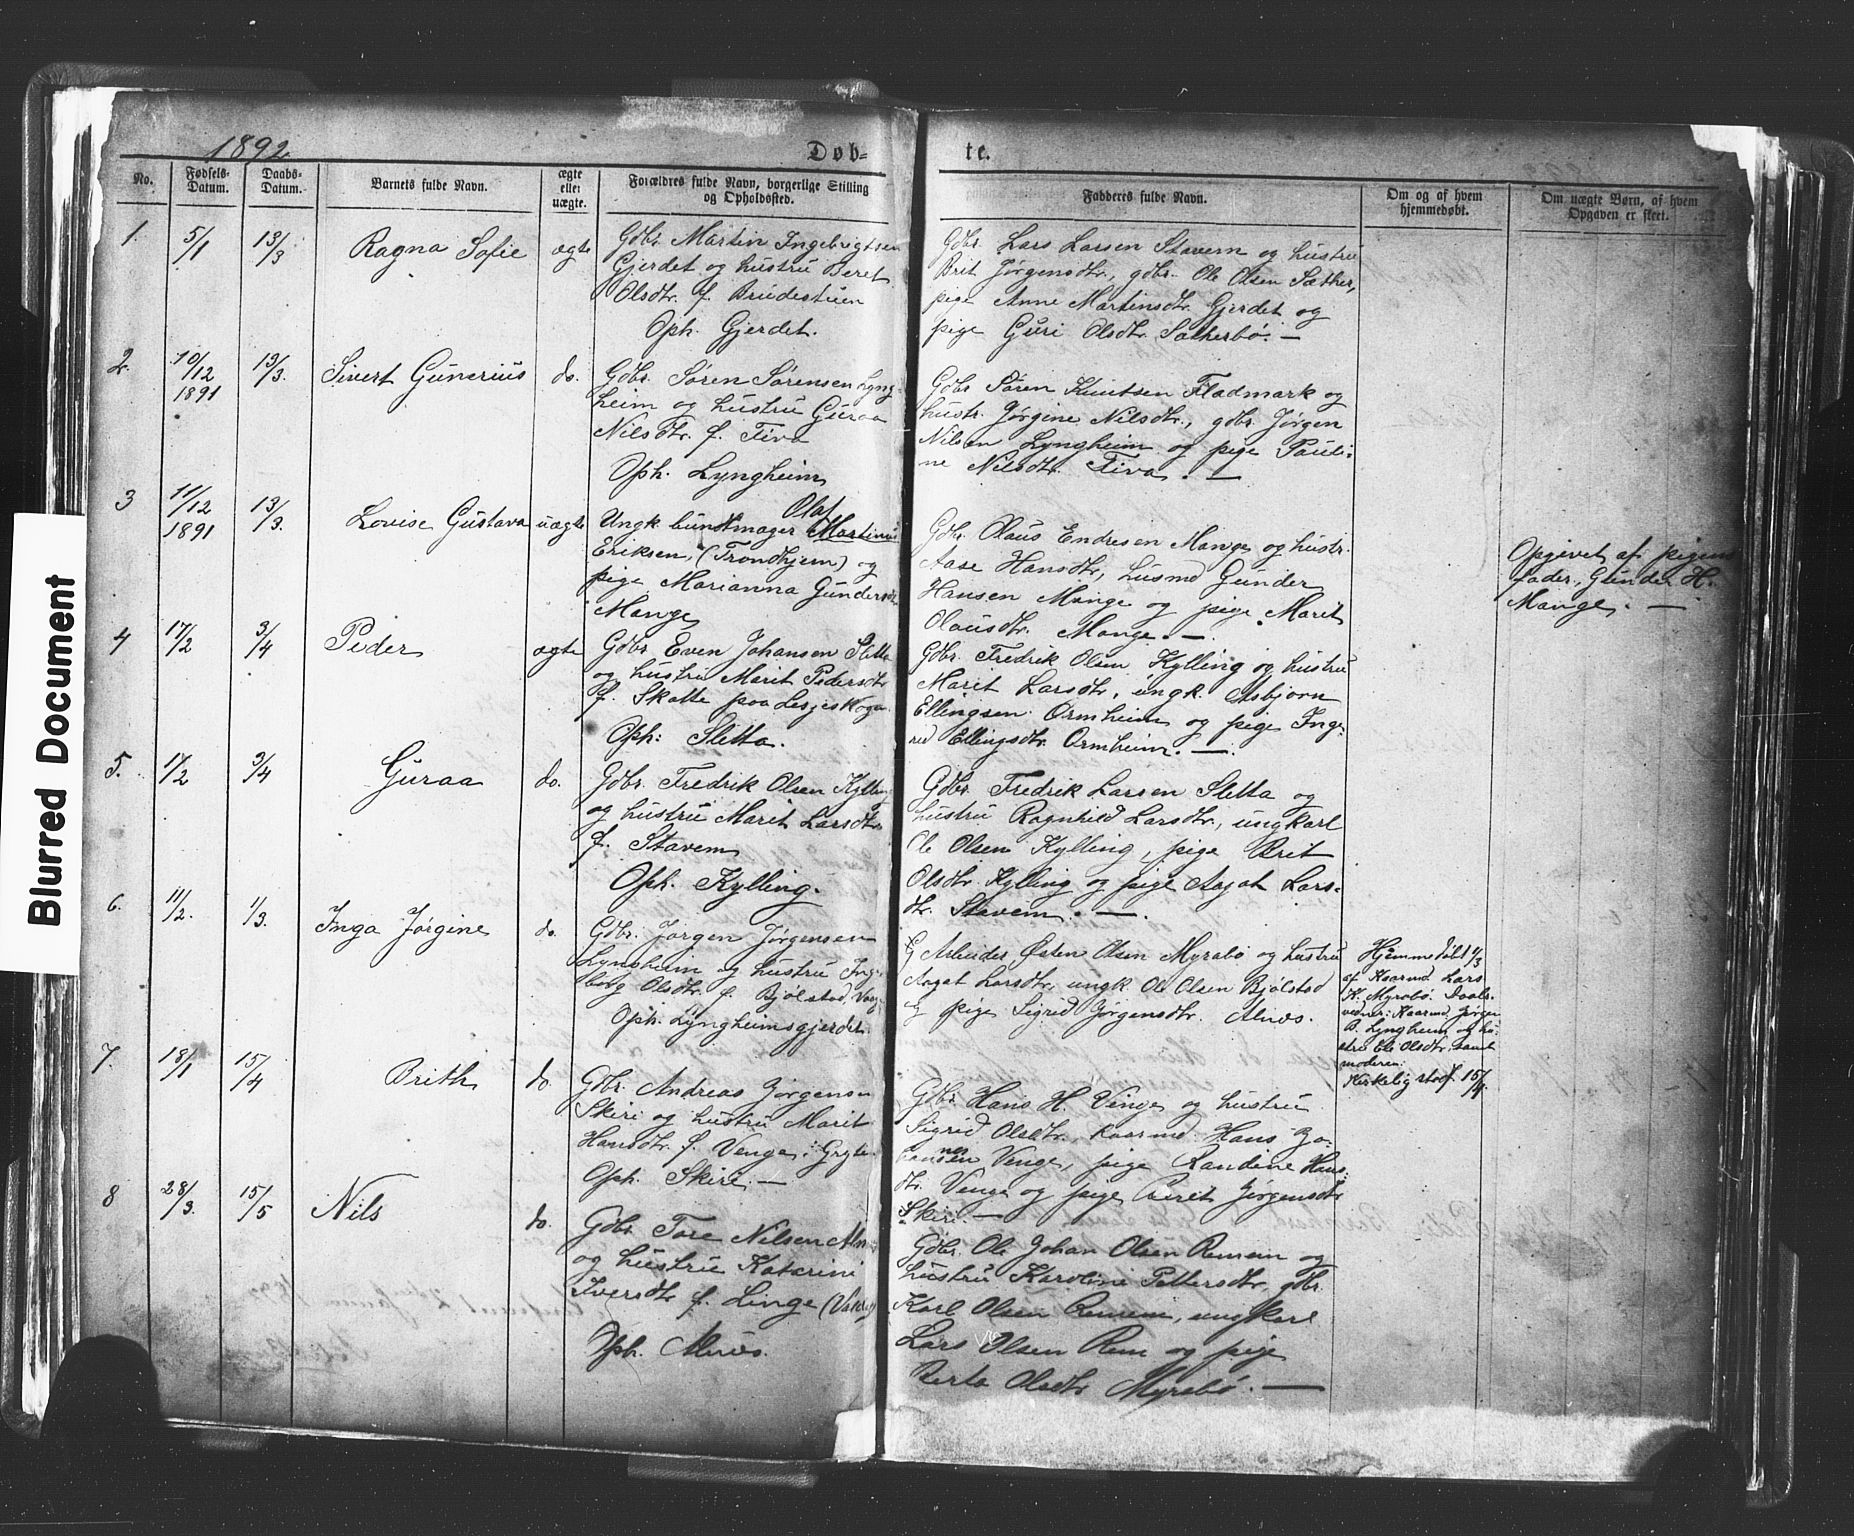 1892.
Døb=
te.
No.
Fødsels-
Datum.
Daabs-
Datum.
Barnets fulde Navn.
ægte
eller
uægte.
Forældres fulde Navn, borgerlige Stilling
og Opholdssted.
Fadderes fulde Navn.
Om og af hvem
hjemmedøbt.
Om uægte Børn, af hvem
Opgaven er skeet.
1.
5/1
13/3
Ragna Sofie
ægte
Gdbr. Martin Ingebrigtsen
Gjerdet og hustru Beret
Olsdtr. f. Brudestuen
Oph. Gjerdet.
Gdbr. Lars Larsen Stavem og hustru
Brit Jørgensdtr., gdbr. Ole Olsen Sæther,
pige Anne Martinsdtr. Gjerdet og
pige Guri Olsdtr. Sætherbø. —
2.
10/12
1891
13/3.
Sivert Gunerius
do.
Gdbr. Søren Sørensen Lyng-
heim og hustru Guraa
Nilsdtr. f. Fiva
Oph. Lyngheim
Gdbr. Søren Knutsen Fladmark og
hustr. Jørgine Nilsdtr., gdbr. Jørgen
Nilsen Lyngheim og pige Pauli-
ne Nilsdtr. Fiva. —
3
11/12
1891
13/3.
Lovise Gustava
uægte
Olaf
Ungk. buntmager Martinus
Eriksen, (Trondhjem) og
pige Marianna Gundersdtr
Mange
Gdbr. Olaus Endresen Mange og hustr.
Aase Hansdtr., husmd Gunder
Hansen Mange og pige Marit
Olausdtr. Mange. —
Opgivet af pigens
fader, Gunder H.
Mange. —
4
17/2
3/4
Peder
ægte
Gdbr. Even Johansen Sletta
og hustru Marit Pedersdtr.
f. Skotte paa Lesjeskogen
Oph: Sletta.
Gdbr. Fredrik Olsen Kylling og hustru
Marit Larsdtr., ungk. Asbjørn
Ellingsen Ormheim og pige Inge-
red Ellingsdtr. Ormheim. —
5.
17/2
3/4
Guraa
do.
Gdbr. Fredrik Olsen Kylling
og hustru Marit Larsdtr.
f. Stavem
Oph. Kylling.
Gdbr. Fredrik Larsen Sletta og
hustru Ragnhild Larsdtr., ungkarl
Ole Olsen Kylling, pige Brit
Olsdtr. Kylling og pige Aagot Lars-
dtr. Stavem. —
6.
11/2.
1/3.
Inga Jørgine
do.
Gdbr. Jørgen Jørgensen
Lyngheim og hustru Inge-
borg Olsdtr. f. Bjølstad, Vaag
Oph. Lyngheimsgjerdet.
Arbeider Østen Olsen Myrabø og hustru
Aagot Larsdtr., ungk. Ole Olsen Bjølstad
og pige Sigrid Jørgensdtr. Alnæs.
Hjemmedøbt 1/3
af Kaarmd. Lars
K. Myrabø. Daabs-
vidner: Kaarmd. Jørgen
B. Lyngheim og hu-
stru Ele Olsdtr. samt
moderen.
Kirkelig stadf. 15/4.
7.
18/1
15/4
Brith
do.
Gdbr. Andreas Jørgensen
Skiri og hustru Marit
Hansdtr. f. Venge i Gryten
Oph. Skiri. —
Gdbr. Hans H. Venge og hustru
Sigrid Olsdtr., kaarmd. Hans Jo-
hannesen Venge, pige Randine Hans-
dtr. Venge og pige Beret Jørgensdtr.
Skiri. —
8
28/3.
15/5
Nils
do.
Gdbr. Tore Nilsen Alnæs
og hustru Katerine
Iversdtr. f. Linge
Oph. Alnæs.
Gdbr. Ole Johan Olsen Remem og
hustru Karoline Pettersdtr., gdbr.
Karl Olsen Remem, ungkarl
Lars Olsen Rem og pige
Berta Olsdtr. Myrabø. —
Blurred Document